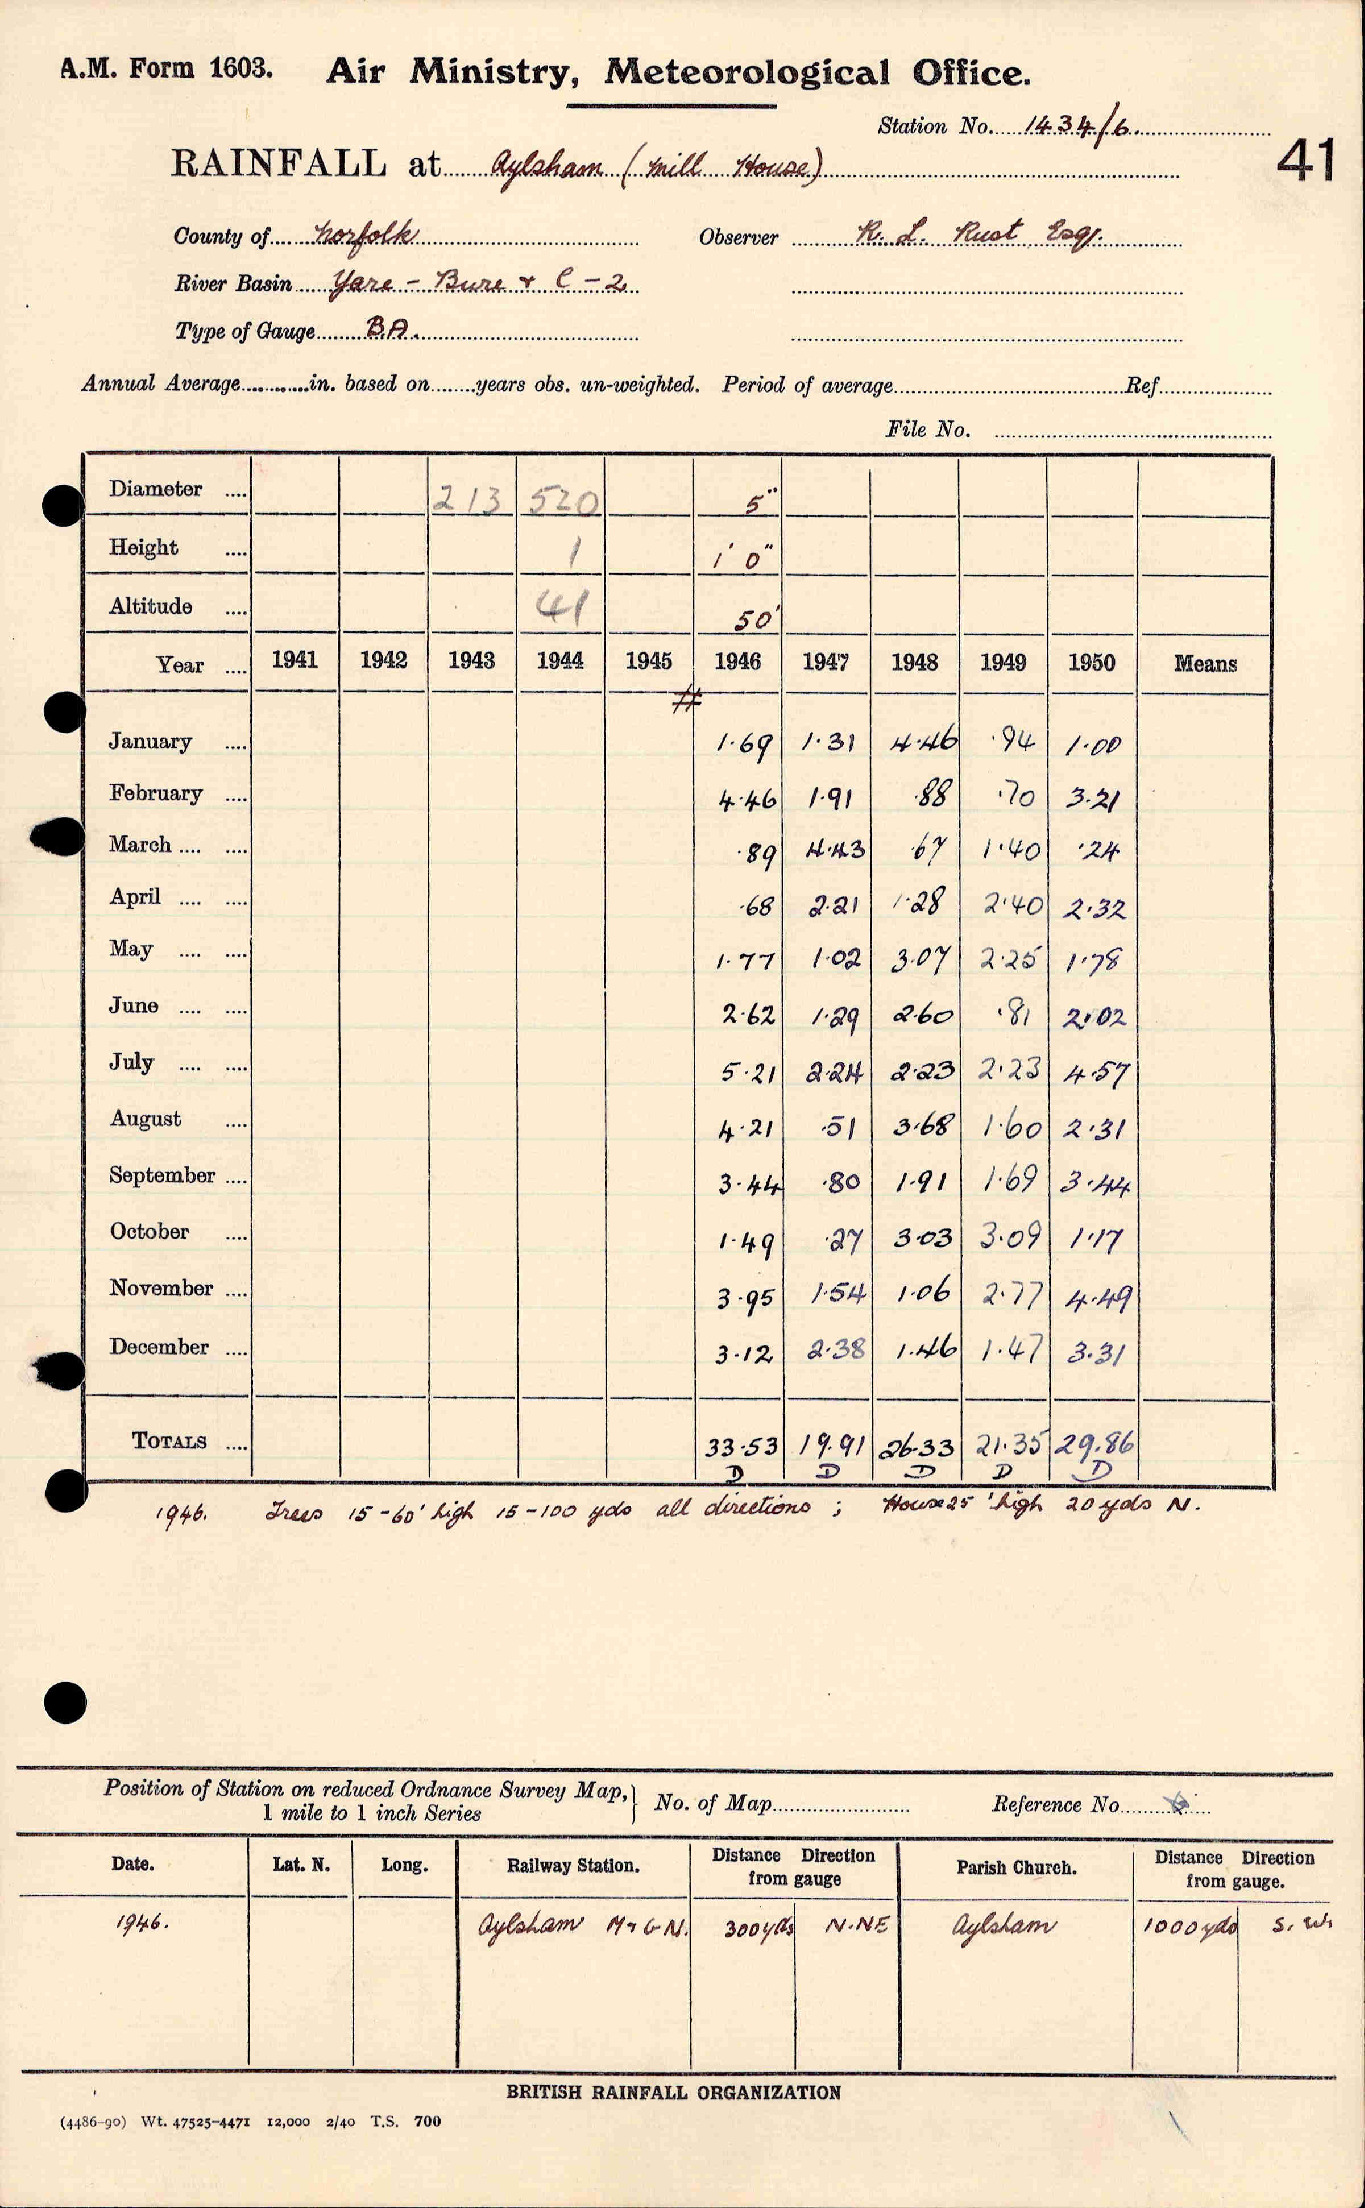 A.M. Form 1603. Air Ministry, Meteorological Office.
Station No. 1434/6.
41
RAINFALL at Aylsham (Mill House)
County of Norfolk Observer R. L. Rust Esq.
River Basin Yare - Bure & C - 2
Type of Gauge B.A.
Annual Average in. based on years obs. un-weighted. Period of average Ref
File No.
Diameter .... 213 520 5"
Height .... 1 1' 0"
Altitude .... 41 50'
Year .... 1941 1942 1943 1944 1945 1946 1947 1948 1949 1950 Means
#
January .... 1.69 1.31 4.46 .94 1.00
February .... 4.46 1.91 .88 .70 3.21
March .... .... .89 4.43 .67 1.40 .24
April .... .... .68 2.21 1.28 2.40 2.32
May .... .... 1.77 1.02 3.07 2.25 1.78
June .... .... 2.62 1.29 2.60 .81 2.02
July .... .... 5.21 2.24 2.23 2.23 4.57
August .... 4.21 .51 3.68 1.60 2.31
September .... 3.44 .80 1.91 1.69 3.44
October .... 1.49 .27 3.03 3.09 1.17
November .... 3.95 1.54 1.06 2.77 4.49
December .... 3.12 2.38 1.46 1.47 3.31
TOTALS .... 33.53 19.91 26.33 21.35 29.86
D D D D D
1946. Trees 15-60' high 15-100 yds all directions ; House 25' high 20 yds N.
Position of Station on reduced Ordnance Survey Map, } No. of Map Reference No 6
1 mile to 1 inch Series
Date. Lat. N. Long. Railway Station. Distance Direction from gauge Parish Church. Distance Direction from gauge.
1946. Aylsham M & G N. 300 yds N.NE Aylsham 1000 yds S.W.
BRITISH RAINFALL ORGANIZATION
(4486-90) Wt. 47525-4471 12,000 2/40 T.S. 700